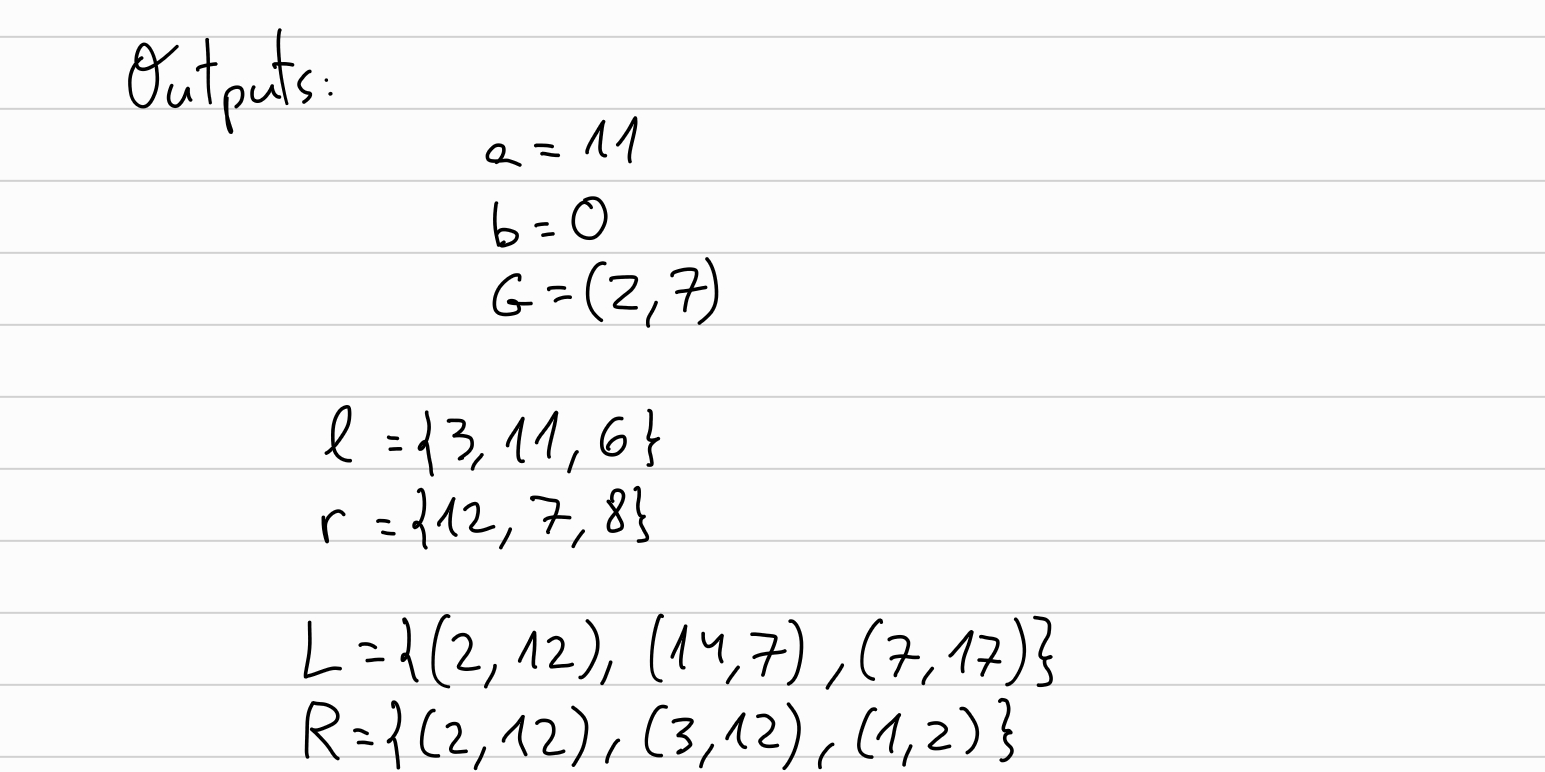 Outputs:
a = 11
b = 0
G = (2,7)
l = {3, 11, 6}
r = {12, 7, 8}
L = {(2, 12), (14,7), (7,17)}
R = {(2,12), (3,12), (1,2)}